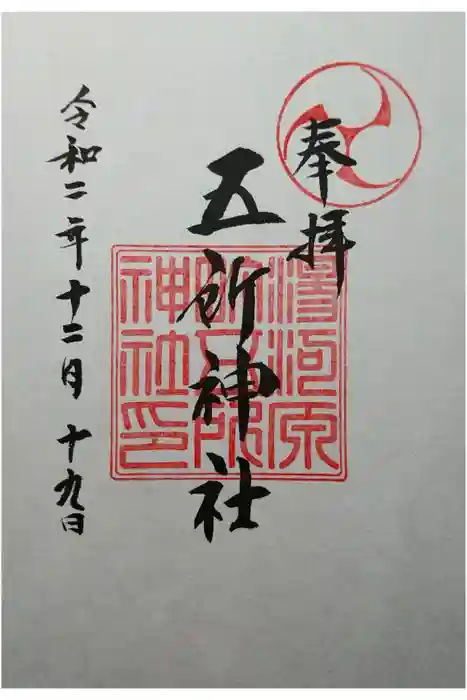 奉拝
五所神社
令和二年十二月十九日
湯河原
五所
神社印